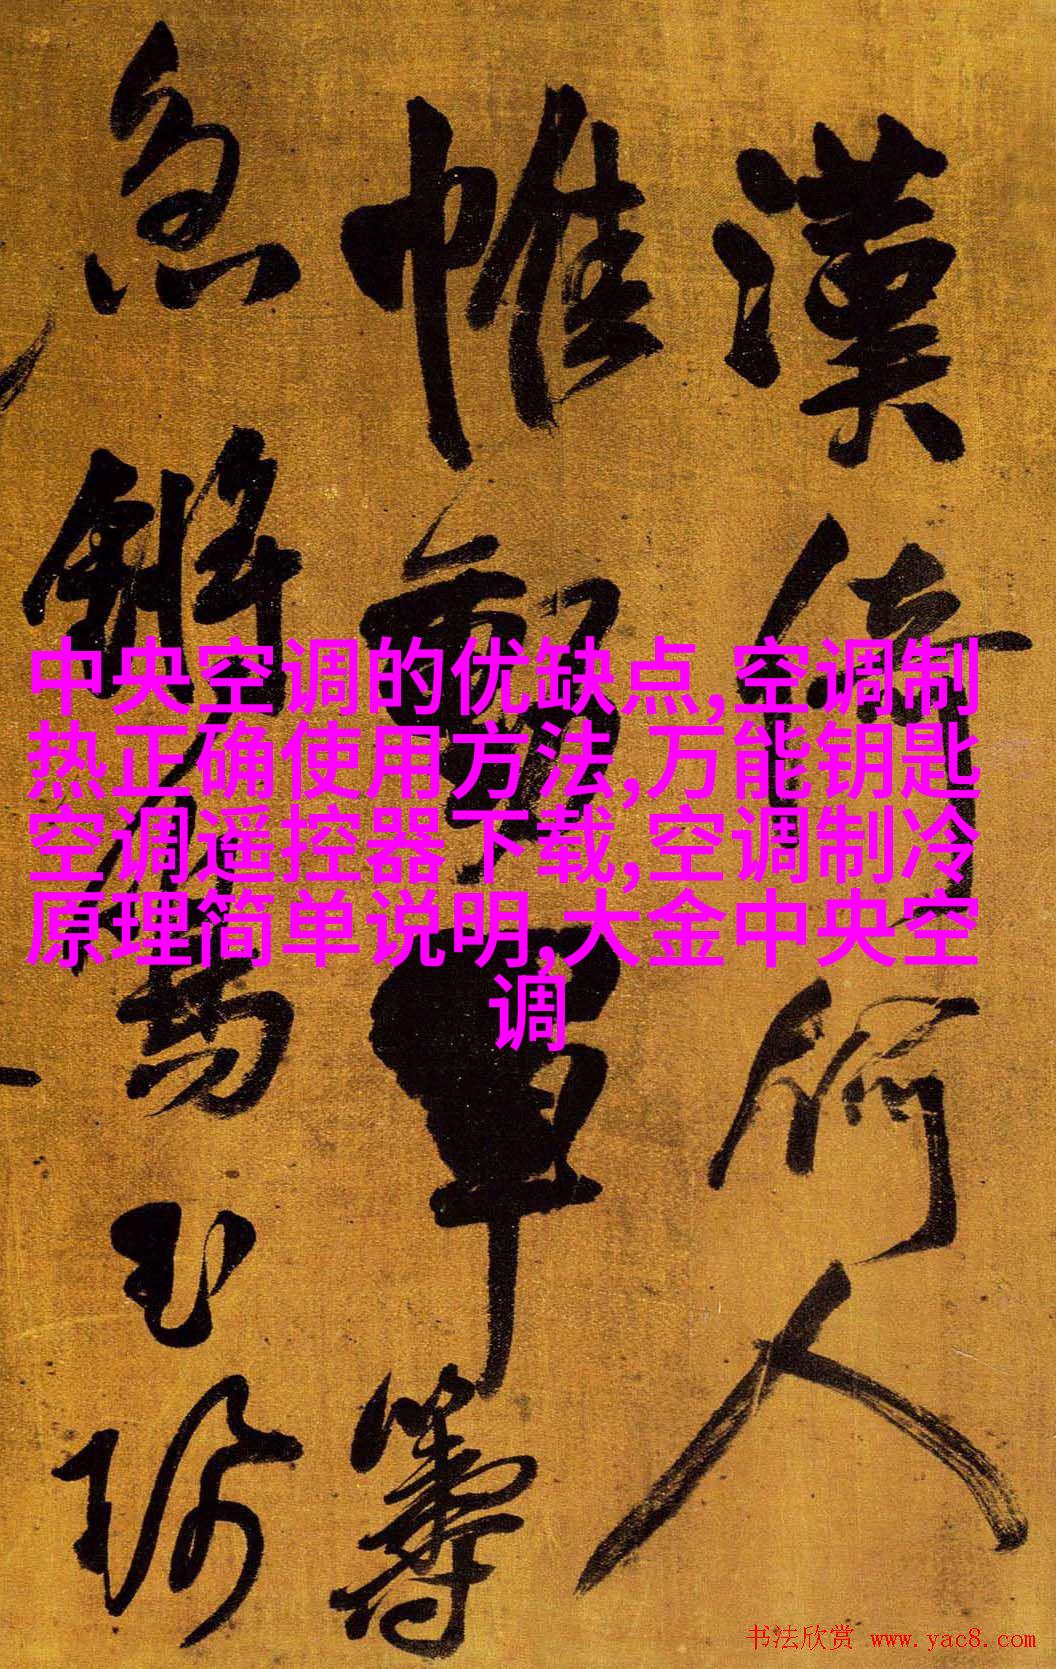 漢倚何人
帷幄軍籌
急鏘鳴玉珂
中央空调的优缺点,空调制
热正确使用方法,万能钥匙
空调遥控器下载,空调制冷
原理简单说明,大金中央空
调
书法欣赏 www.yac8.com